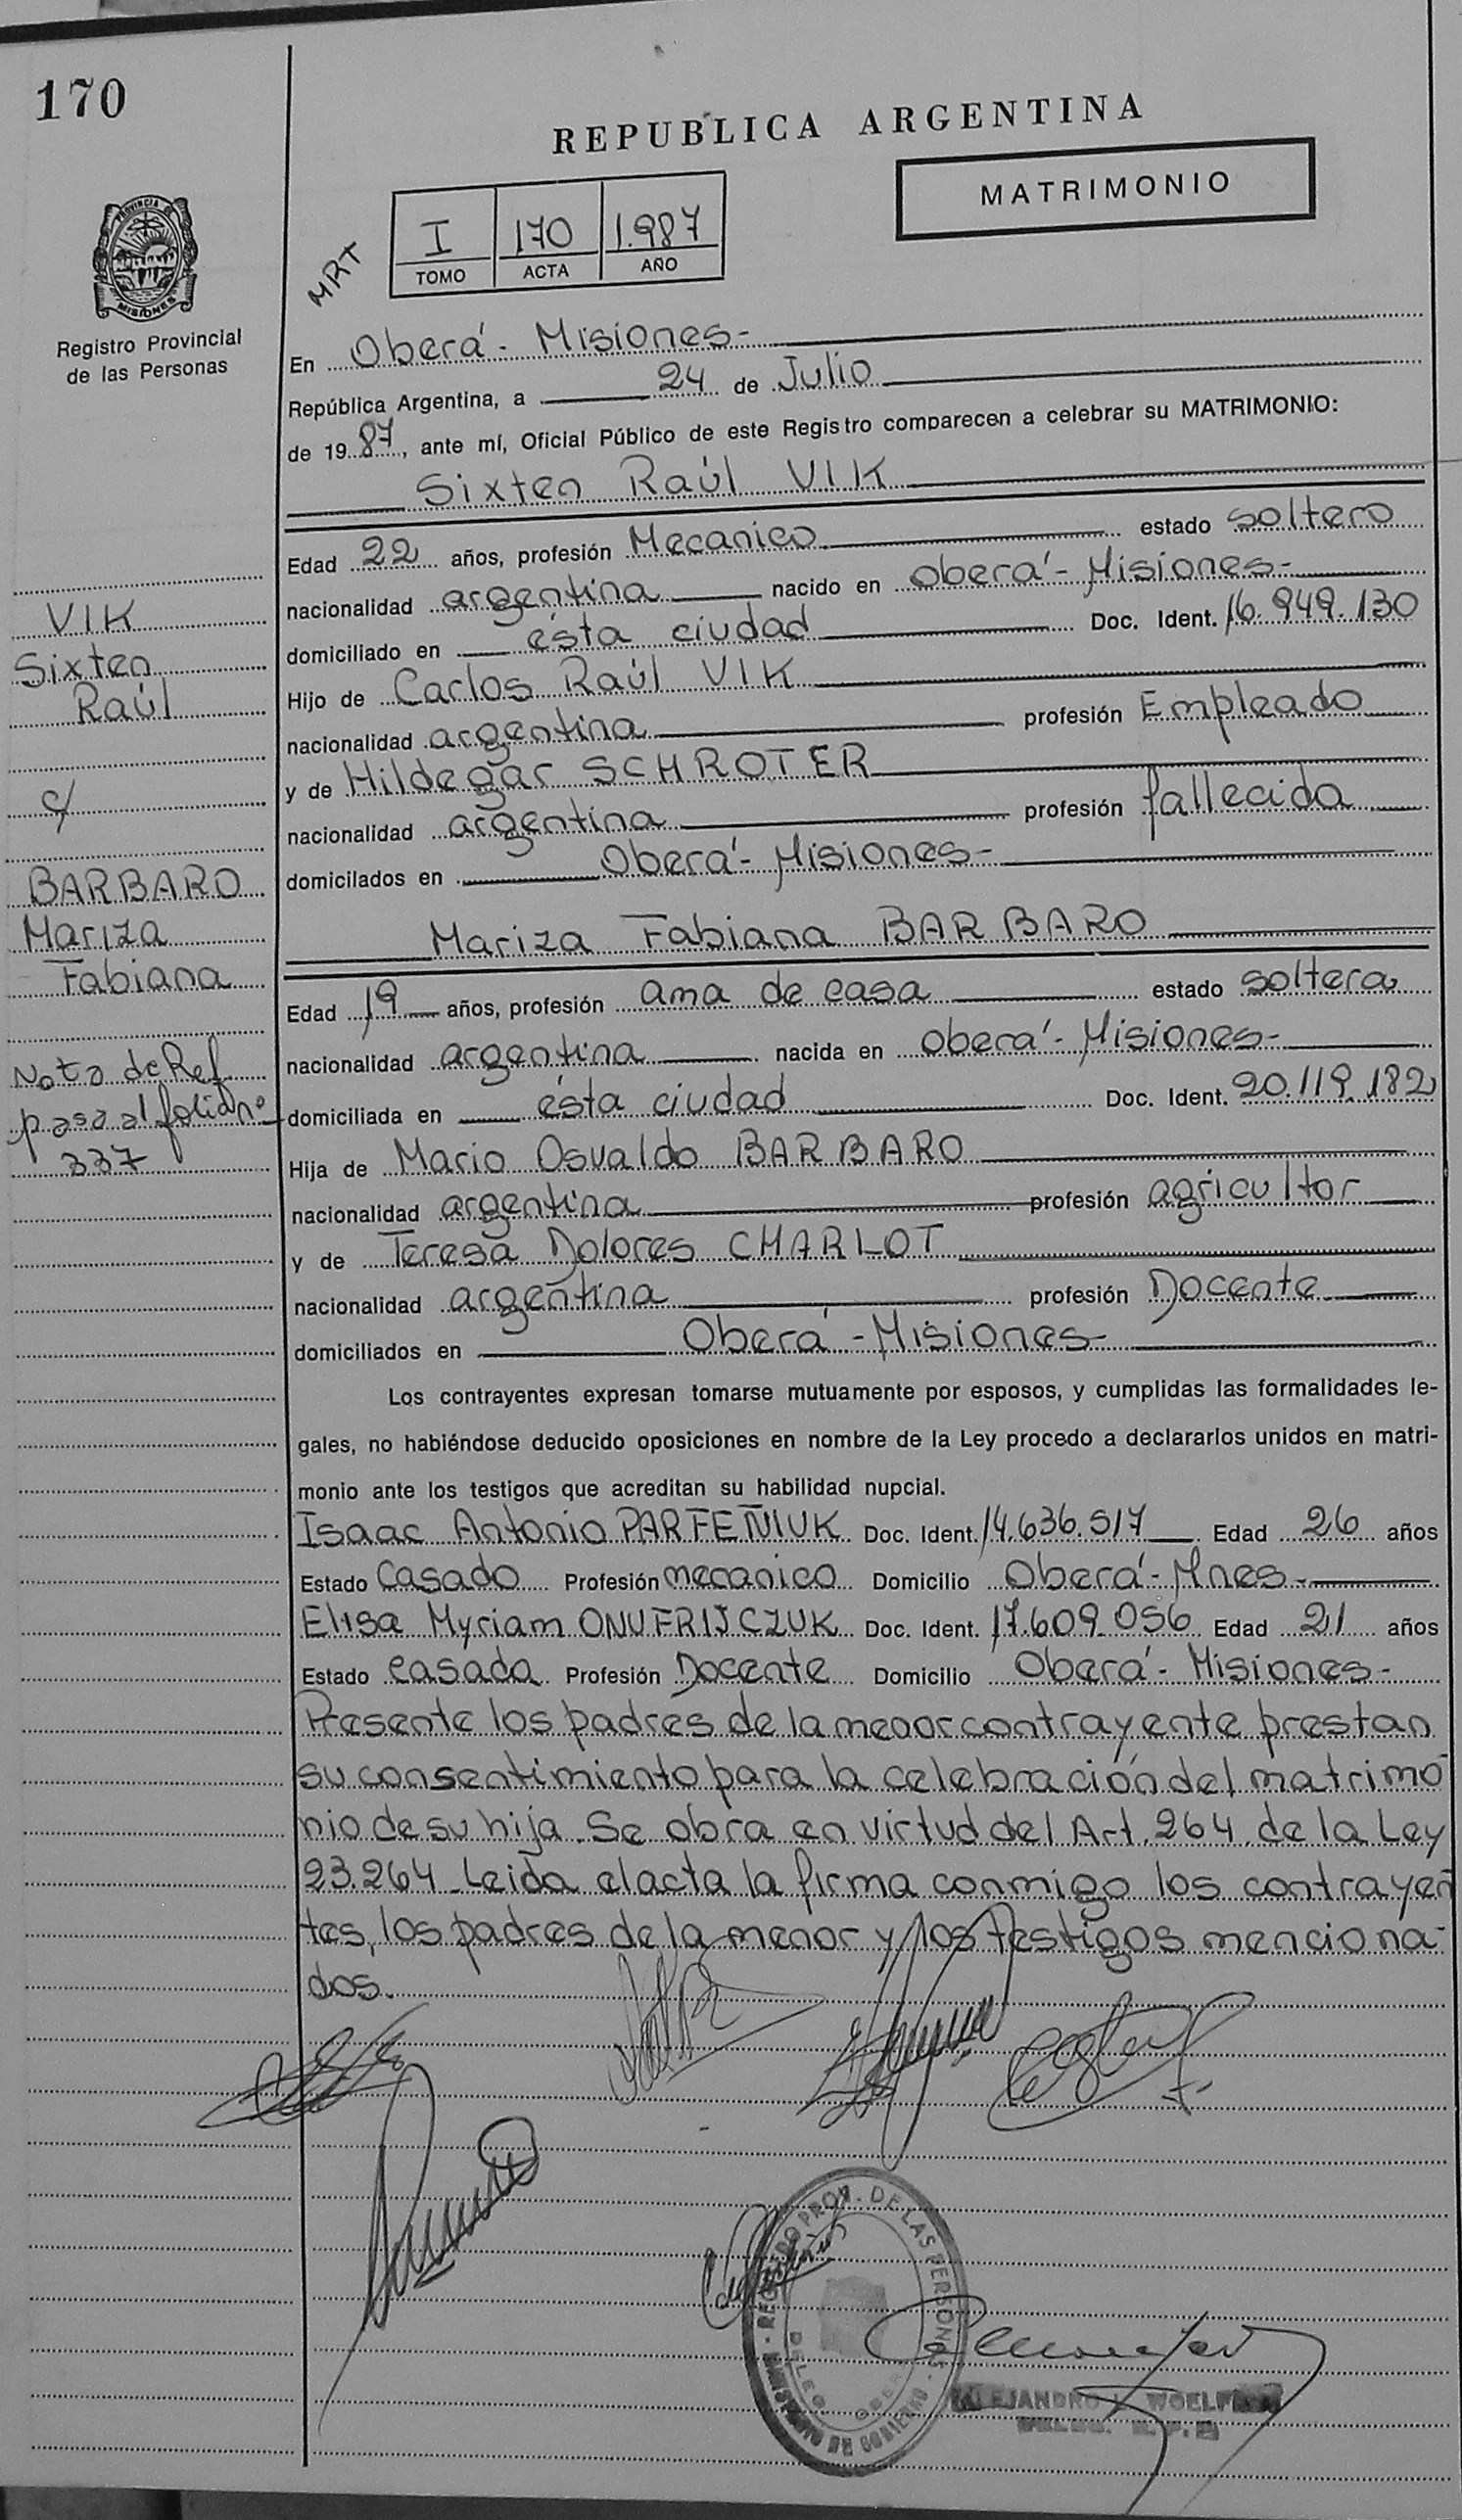 170
REPUBLICA ARGENTINA
MATRIMONIO
PROVINCIA DE
MISIONES
Registro Provincial
de las Personas
MRT
I 170 1.987
TOMO ACTA AÑO
En Oberá - Misiones-
República Argentina, a 24 de Julio
de 1987, ante mí, Oficial Público de este Registro comparecen a celebrar su MATRIMONIO:
Sixten Raúl VIK
Edad 22 años, profesión Mecanico estado soltero
nacionalidad argentina nacido en Oberá - Misiones-
domiciliado en ésta ciudad Doc. Ident. 16.949.130
Hijo de Carlos Raúl VIK
nacionalidad argentina profesión Empleado
y de Hildegar SCHROTER
nacionalidad argentina profesión fallecida
domicilados en Oberá - Misiones-
Mariza Fabiana BARBARO
Edad 19 años, profesión ama de casa estado soltera
nacionalidad argentina nacida en Oberá - Misiones-
domiciliada en ésta ciudad Doc. Ident. 20.119.182
Hija de Mario Osvaldo BARBARO
nacionalidad argentina profesión agricultor
y de Teresa Dolores CHARLOT
nacionalidad argentina profesión Docente
domiciliados en Oberá - Misiones-
VIK
Sixten
Raúl
c/
BARBARO
Mariza
Fabiana
Nota de Ref
pasa al folio nº
337
Los contrayentes expresan tomarse mutuamente por esposos, y cumplidas las formalidades le-
gales, no habiéndose deducido oposiciones en nombre de la Ley procedo a declararlos unidos en matri-
monio ante los testigos que acreditan su habilidad nupcial.
Isaac Antonio PARFEÑIUK Doc. Ident. 14.636.517 Edad 26 años
Estado Casado Profesión mecanico Domicilio Oberá - Mnes-
Elisa Myriam ONUFRIJCZUK Doc. Ident. 17.609.056 Edad 21 años
Estado Casada Profesión Docente Domicilio Oberá - Misiones-
Presente los padres de la menor contrayente prestan
su consentimiento para la celebración del matrimo
nio de su hija. Se obra en virtud del Art. 264 de la Ley
23.264 - Leida el acta la firma conmigo los contrayen
tes, los padres de la menor y los testigos menciona-
dos.
REGISTRO PROV. DE LAS PERSONAS
MINISTERIO DE GOBIERNO
ALEJANDRO